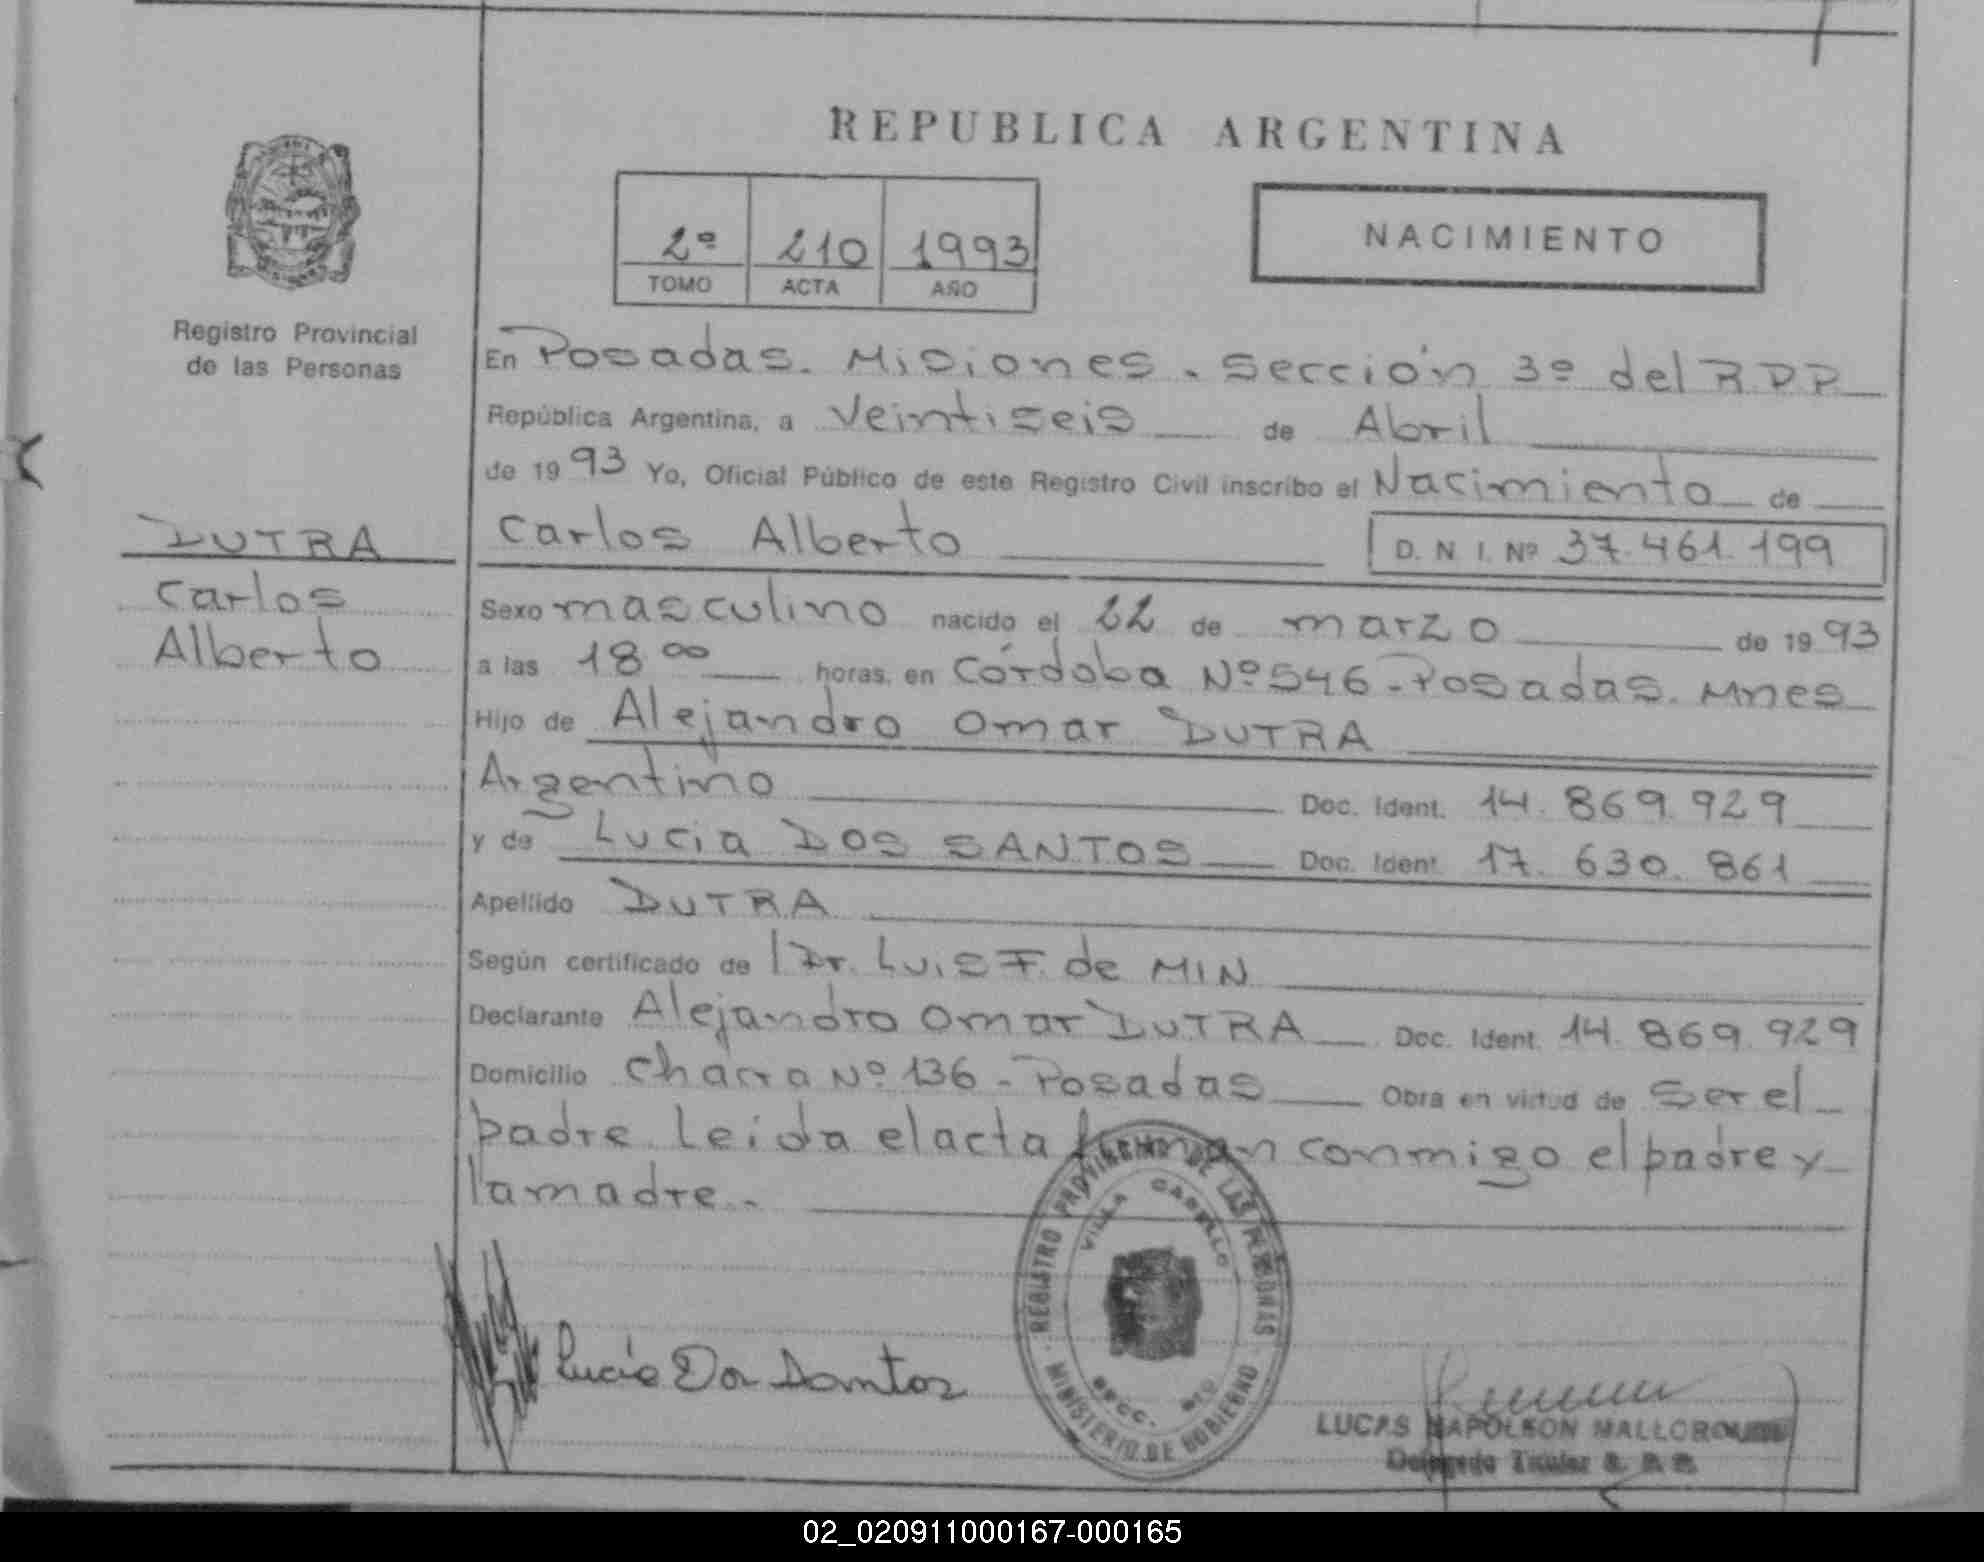 REPUBLICA ARGENTINA
2º 210 1993
TOMO ACTA AÑO
NACIMIENTO
Registro Provincial
de las Personas
DUTRA
Carlos
Alberto
En Posadas. Misiones. Sección 3º del RPP
República Argentina, a Veintiseis de Abril
de 1993 Yo, Oficial Público de este Registro Civil inscribo el Nacimiento de
Carlos Alberto D. N. I. Nº 37.461.199
Sexo masculino nacido el 22 de marzo de 1993
a las 18 00 horas. en Córdoba Nº 546 - Posadas. Mnes
Hijo de Alejandro Omar DUTRA
Argentino Doc. Ident. 14.869.929
y de Lucia DOS SANTOS Doc. Ident. 17.630.861
Apellido DUTRA
Según certificado de Dr. Luis F. de MIN
Declarante Alejandro Omar DUTRA Doc. Ident. 14.869.929
Domicilio Chacra Nº 136 - Posadas Obra en virtud de ser el
padre. Leida el acta firman conmigo el padre y
la madre.
REGISTRO PROVINCIAL DE LAS PERSONAS
VILLA CABELLO
SECC.
MINISTERIO DE GOBIERNO
Lucia Do Santos
LUCAS NAPOLEON
Delegado Titular R. P. P.
02_020911000167-000165